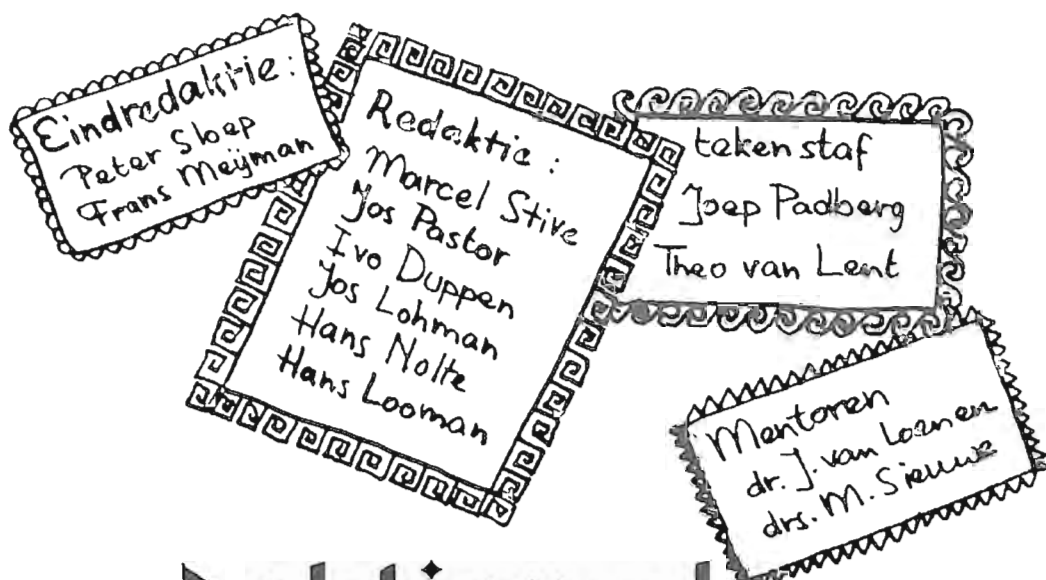 Eindredaktie:
Peter Sloep
Frans Meijman
Redaktie:
Marcel Stive
Jos Pastor
Ivo Duppen
Jos Lohman
Hans Nolte
Hans Looman
tekenstaf
Joep Padberg
Theo van Lent
Mentoren
dr. J. van Loenen
drs. M.